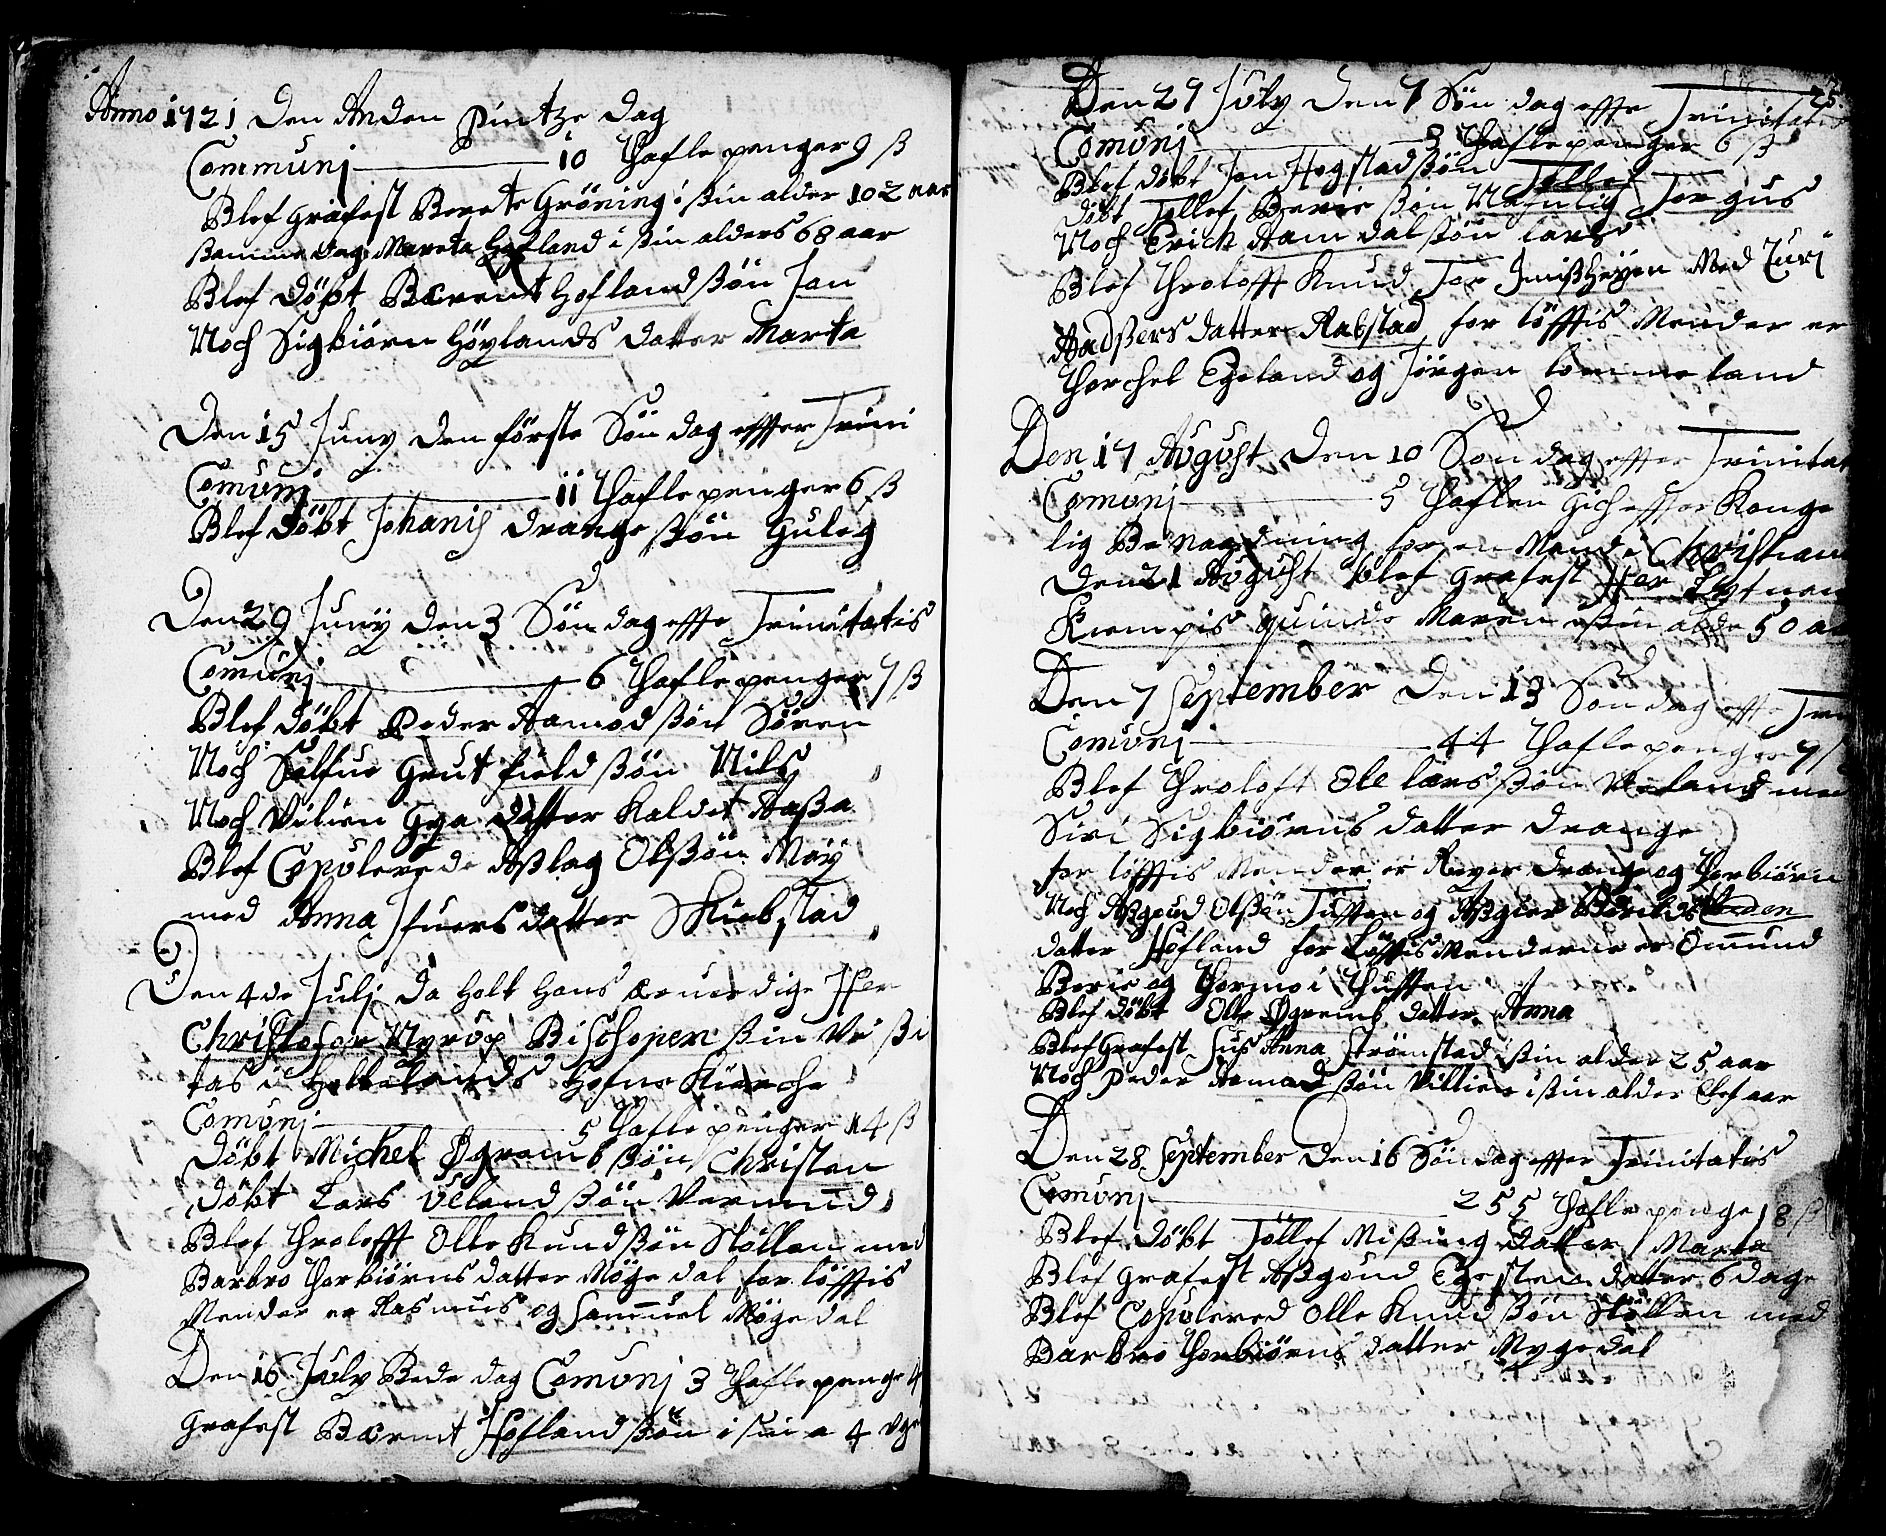 Anno 1721 Den Anden Pintze Dag
Communj 10 Thafle penger 9 ß
Blef Grafest Berete Gröning i ßin alder 102 aar
ßamme Dag Mareta Hofland i ßin alders 68 aar
Blef Döbt Bærent Hofland ßön Jan
Noch Sigbiörn Höylands Datter Marta
Den 15 Juny Den förste Sön dag effter Trini
Comunj 11 Thafle penger 6 ß
Blef Döbt Johanis Drange ßön Guleg
Den 29 Juny den 3 Sön dag effte Trinitatis
Comunj 6 Thafle penger 7 ß
Blef Döbt Peder Aamod ßön Sören
Noch Salfue Grut field ßön Nils
Noch Vilien Gya Datter Kaldet Aaßa
Blef Copulerede Aßlag Olßön Möy
med Anna Jfuersdatter Skiebstad
Den 4de Julj Da Holt Hans ærwerdige Her
Christofar Nyrop Bischopen ßin Vi ßi
tas i Hellelands Hofue Kierche
Comunj 5 Thafle penger 14 ß
Döbt Michel Øgrems ßön Christen
Döbt Lars Ulland ßön Vermund
Blef Throlofft Olle Knud ßön Stöllen med
Barbro Thorbiörns datter Möge dal for löfftis
Mender er Rasmus og Samuel Möge dal
Den 16 July Bede dag Comunj 3 Thafle penge 4
Grafest Bærent Hofland ßön i sin a 4 Uge
25.
Den 27 July Den 7 Sön dag effte Trinitatis
Comunj 3 Thafle penger 6 ß
Blef döbt Jan Hegstad ßön Tollef
döbt Tollef Berie ßön Nafnlig Torgus
Noch Erick Aamdal ßön Lars
Blef Throlofft Knud Tor Jmißhöyen Med Zuri
Aadßers datter Rabstad for löfftis Mender er
Thorchel Egeland og Jörgen Lomme land
Den 17 August Den 10 Søndag effter Trinitat
Comunj 5 Thaflen Gich effter Konge
lig Be naadning for en Mand i Christian
Den 21 August blef Grafest Her Leytnan
Kiempis quinde Maren i ßin alder 50 aa
Den 7 September Den 13 Søndag effte Tri
Comunj 44 Thafle penger 7 ß
Blef Throloft Ole Lars ßön Veland med
Siri Sigbiörns datter Drange
for löfftis Mender er Reyer Drange og Thorbiörn
Noch Aßgoud Olßön Tufften og Aßgier
datter Hofland for Löfftis Menderne er Omund
Berie og Thormoi Thufften
Blef döbt Olle Øgrems datter Anna
Blef Grafest Sus Anna Strömstad i ßin alder 25 aar
Noch Peder Aamod ßön Villien i ßin alder Elef aar
Den 28 September Den 16 Sön dag effter Trinitatis
Comunj 255 Thafle penge 18 ß
Blef Döbt Töllef Mißing datter Marta
Blef Grafest Aßgoud Egesteen datter 6 dage
Blef Copulered Olle Knud ßön Stöllen med
Barbro Thorbiörns datter Mygedal